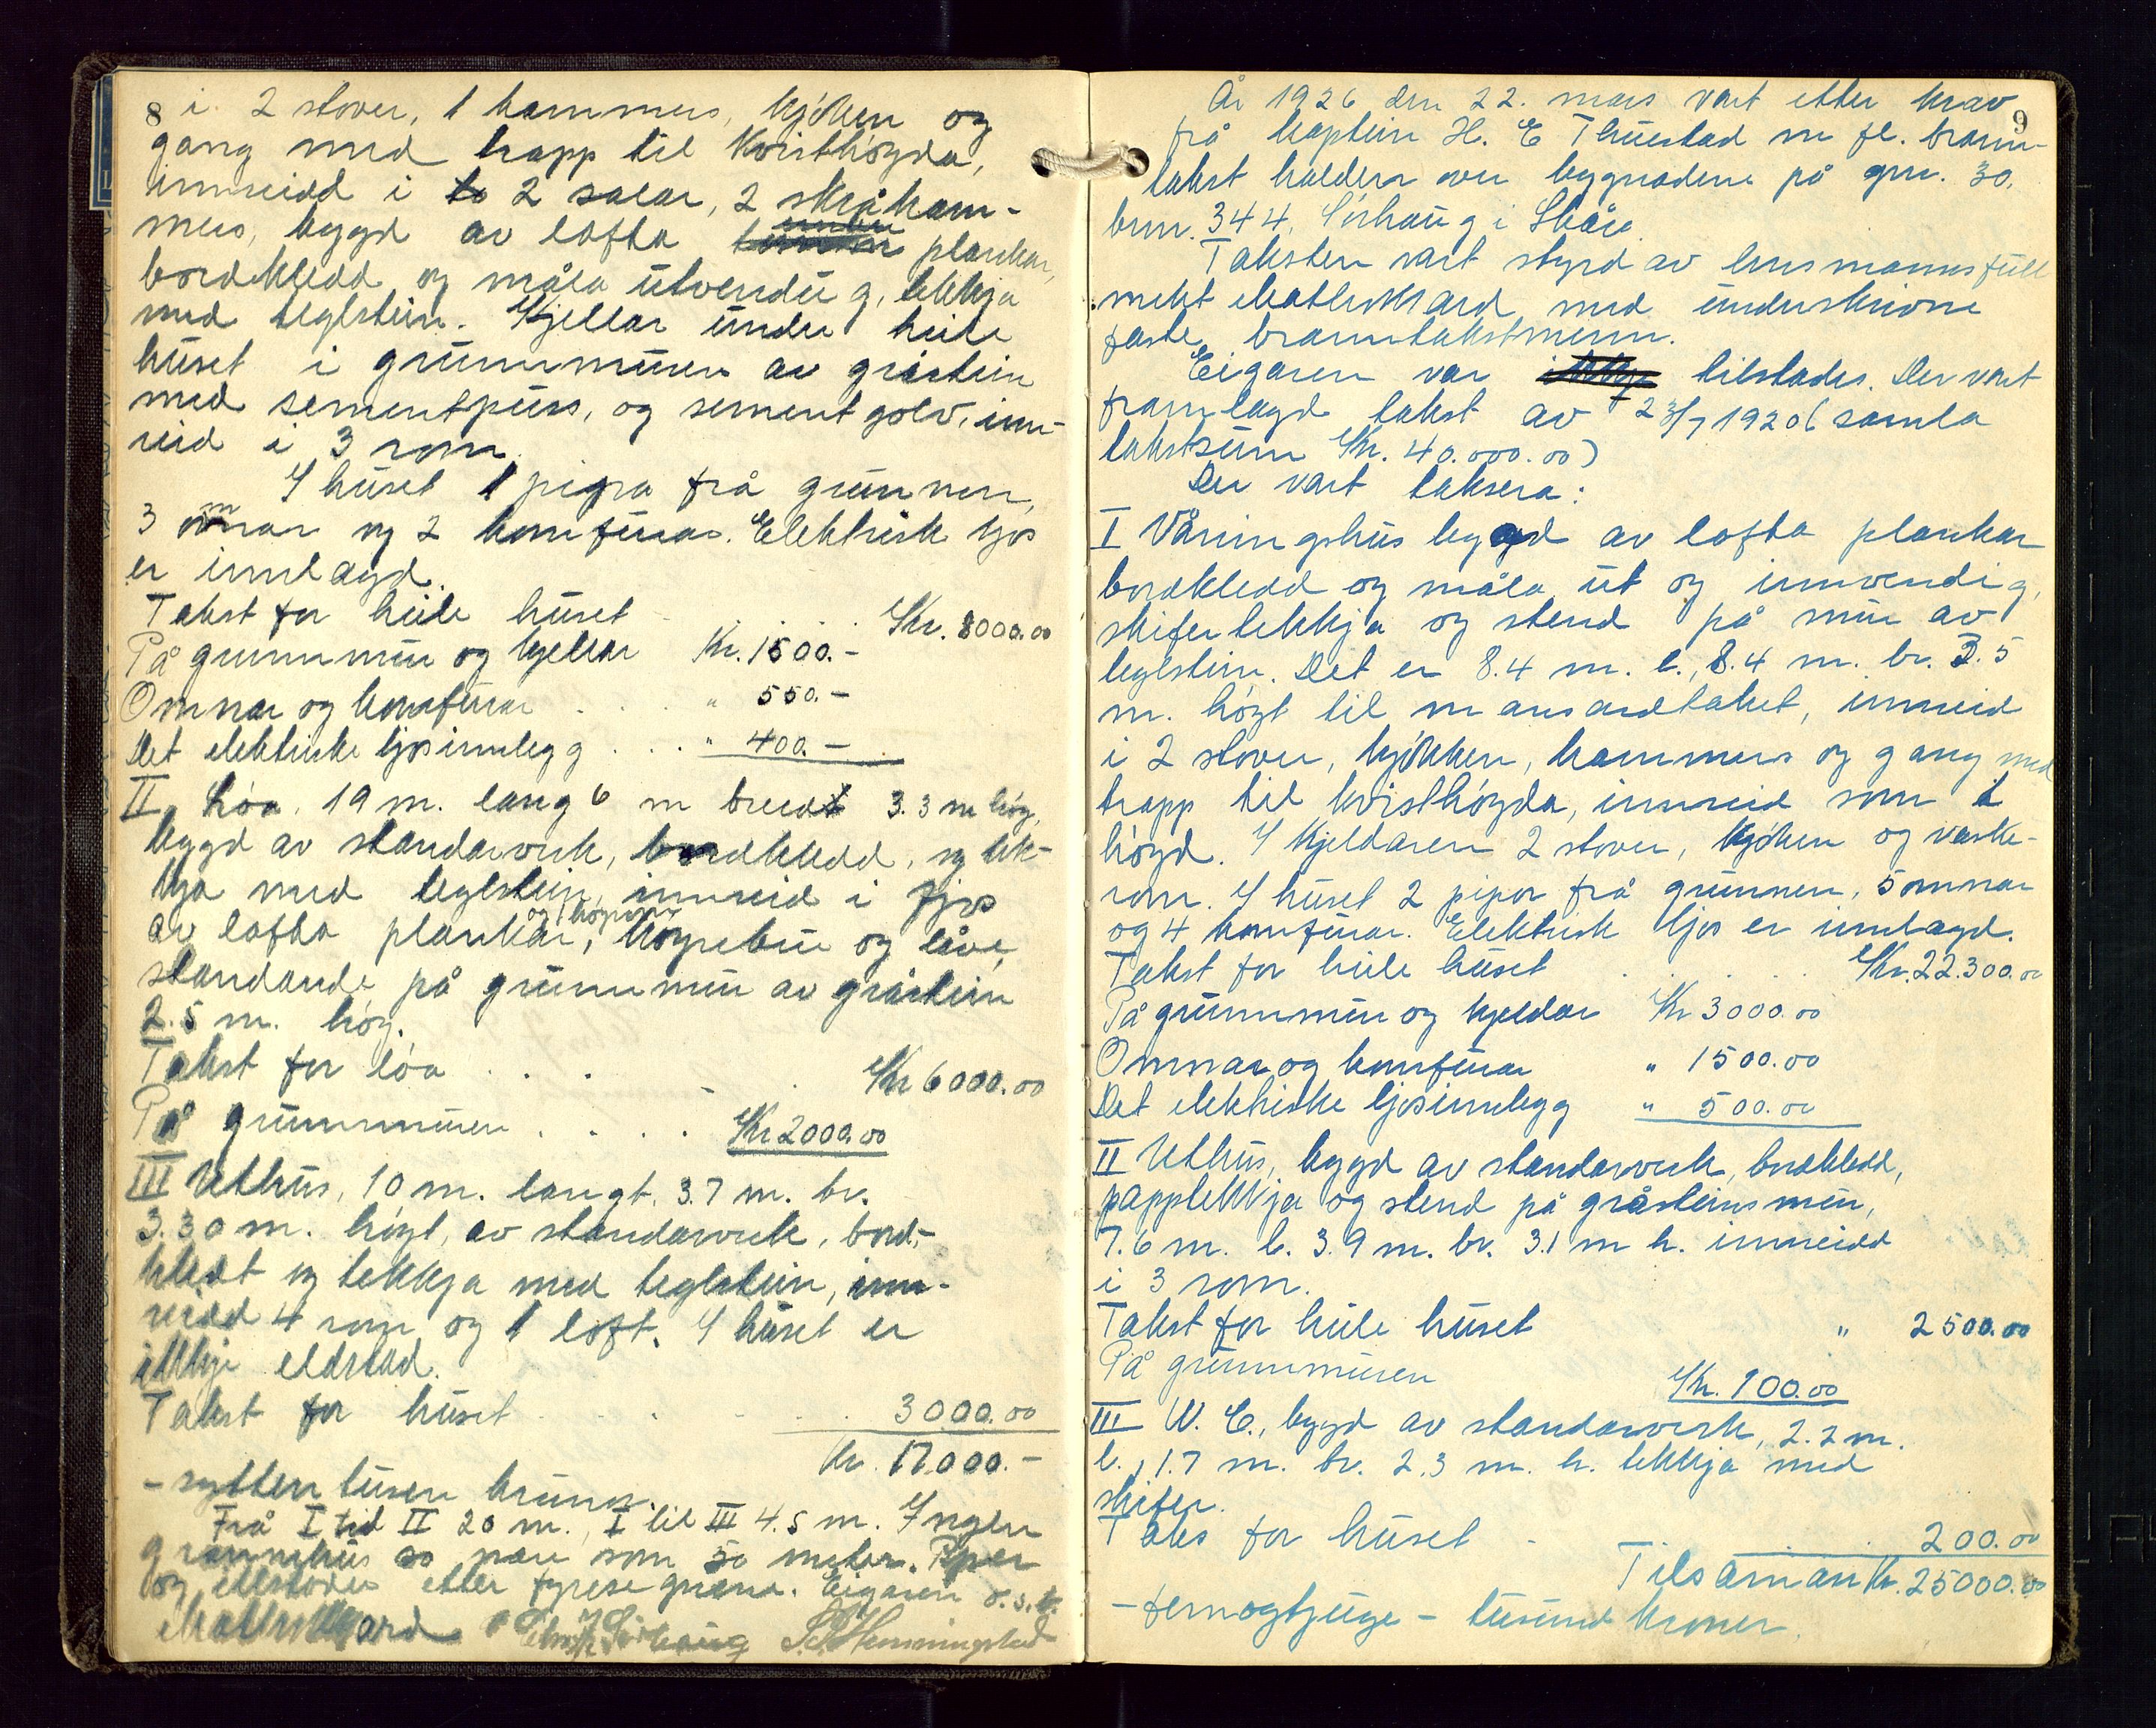 8 i 2 stover, 1 kammers, kjöken og
gang med trapp til Kvisthögda,
innreidd i to 2 salar, 2 skråkam-
mers, bygd av lofta plankar,
bordkledd og måla utvendug, tekkja
med teglstein. Kjellar under heile
huset i grunnmuren av gråstein
med sementpuss, og sement golv, inn-
reid i 3 rom.
I huset 1 pipa frå grunnen,
3 omnar og 2 komfurar. Elektrisk ljos
er innlagd.
Takst for heile huset . . . Kr. 8000.00
På grunnmur og kjellar Kr. 1500.-
Omnar og komfurar . . . " 550.-
Det elektriske ljosinnlegg . . . " 400.-
II Löa, 19 m. lang 6 m breid 3.3 m høg,
bygd av standarverk, bordkledd, og tek-
kja med teglstein, innreid i fjos
av lofta plankar, högrebu og låve,
standande på grunnmur av gråstein
2.5 m. høg.
Takst for löa . . . Kr 6000.00
På grunnmuren . . . . Kr 2000.00
III Uthus, 10 m. langt, 3.7 m. br.
3.30 m. högt, av standarverk, bord-
kledt og tekkja med teglstein, inn-
reidd 4 rom og 1 loft. I huset er
ikkje eldstad.
Takst for huset . . . 3000.00
Kr. 17000.-
- sytten tusen kruner.
Frå I til II 20 m., I til III 4.5 m. Ingen
grannehus so nære som 50 meter. Piper
og eldstader etter fyresegnene. Eigaren o.s.t.
S. Henningstad
9
År 1926 den 22. mars vart etter krav
frå kaptein H. E Thuestad m fl. brann-
takst halden over bygnadene på gnr. 30,
brnr. 344, Sörhaug i Skåre.
Taksten vart styrd av lensmannsfull
mekt med underskrivne
faste branntakstmenn.
Eigaren var ikkje tilstades. Der vart
framlagd takst av 23/7 1920 (samla
takstsum Kr. 40.000.00)
Der vart taksera:
I Våningshus bygd av lofta plankar
bordkledd og måla ut og innvendig,
skifertekkja og stend på mur av
teglstein. Det er 8.4 m. l., 8.4 m. br. 3.5
m. högt til mansardtaket, innreid
i 2 stover, kjökken, kammers og gang med
trapp til kvisthögda, innreid som 1
högd. I kjeldaren 2 stover, kjöken og vaske-
rom. I huset 2 pipor frå grunnen, 5 omnar
og 4 komfurar. Elektrisk ljos er innlagd.
Takst for heile huset . . . . Kr. 22.300.00
På grunnmur og kjeldar Kr 3000.00
Omnar og komfurar " 1500.00
Det elektriske ljosinnlegg " 500.00
II Uthus, bygd av standarverk, bordkledd,
papptekkja og stend på gråsteinsmur,
7.6 m. l. 3.9 m. br. 3.1 m h. innreidd
i 3 rom.
Takst for heile huset " 2500.00
På grunnmuren Kr. 100.00
III W. C., bygd av standarverk, 2.2 m.
l., 1.7 m. br. 2.3 m. h. tekkja med
skifer.
Taks for huset . 200.00
Tilsaman Kr. 25000.00
- femogtjuge - tusund kroner.